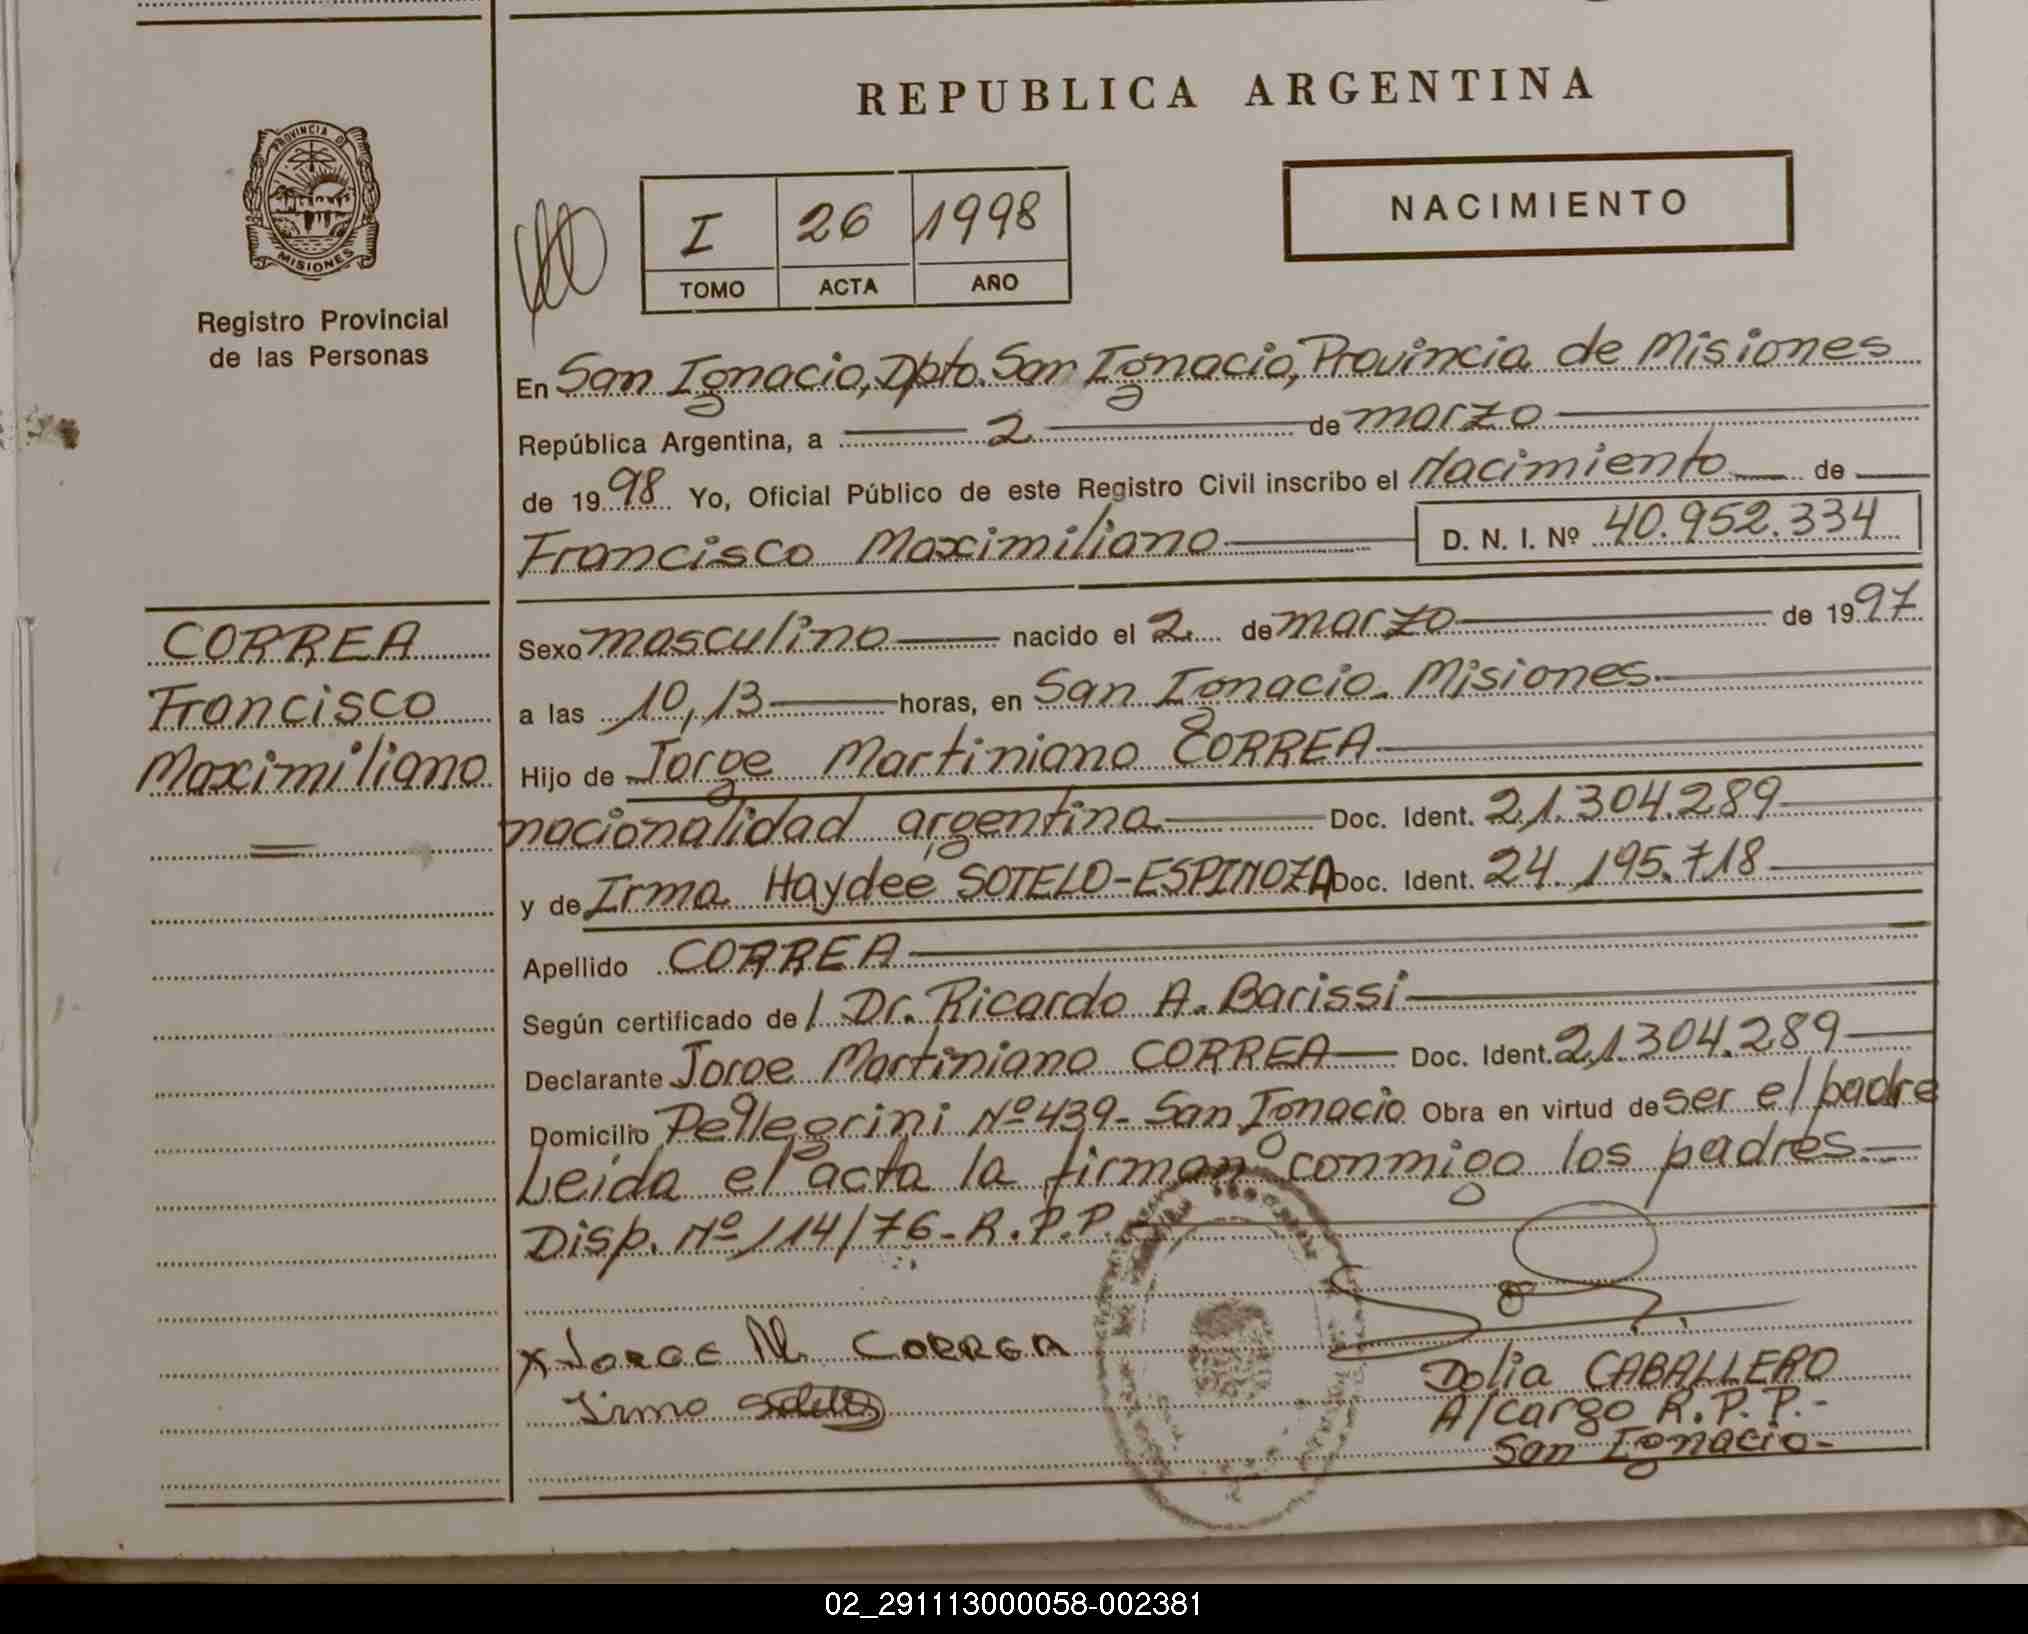 REPUBLICA ARGENTINA
PROVINCIA DE
MISIONES
Registro Provincial
de las Personas
I 26 1998
TOMO ACTA AÑO
NACIMIENTO
En San Ignacio, Dpto. San Ignacio, Provincia de Misiones
República Argentina, a 2 de marzo
de 1998 Yo, Oficial Público de este Registro Civil inscribo el Nacimiento de
Francisco Maximiliano D. N. I. Nº 40.952.334
CORREA
Francisco
Maximiliano
Sexo masculino nacido el 2 de marzo de 1997
a las 10,13 horas, en San Ignacio. Misiones.
Hijo de Jorge Martiniano CORREA
nacionalidad argentina Doc. Ident. 21.304.289
y de Irma Haydeé SOTELO-ESPINOZA Doc. Ident. 24.195.718
Apellido CORREA
Según certificado de / Dr. Ricardo A. Barissi
Declarante Jorge Martiniano CORREA Doc. Ident. 21.304.289
Domicilio Pellegrini Nº 439- San Ignacio Obra en virtud de ser el padre
Leída el acta la firman conmigo los padres.
Disp. Nº 114/76- R.P.P.
x Jorge M. CORREA
Irma Sotelo
Dolia CABALLERO
A/cargo R.P.P.-
San Ignacio-
02_291113000058-002381